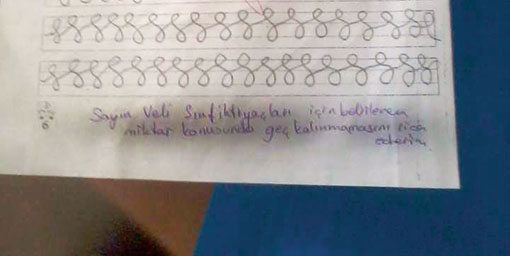 Sayın Veli Sınıf ihtiyaçları için belirlenen
miktar konusunda geç kalınmamasını rica
ederim